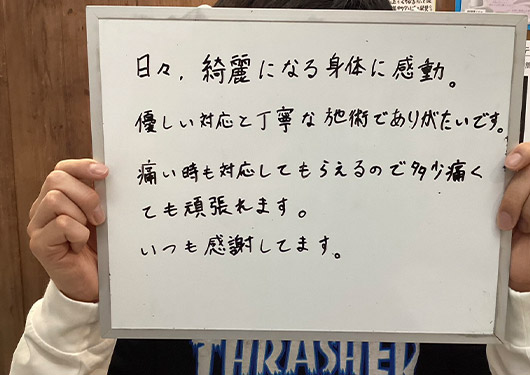 日々、綺麗になる身体に感動。
優しい対応と丁寧な施術でありがたいです。
痛い時も対応してもらえるので多少痛く
ても頑張れます。
いつも感謝してます。
THRASHER